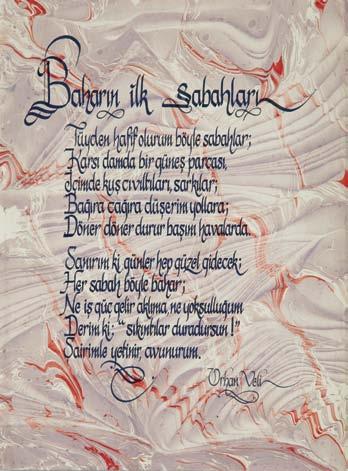 Baharın ilk Sabahları
Tüyden hafif olurum böyle sabahlar;
Karşı damda bir güneş parçası,
İçimde kuş cıvıltıları, şarkılar;
Bağıra çağıra düşerim yollara;
Döner döner durur başım havalarda.
Sanırım ki günler hep güzel gidecek;
Her sabah böyle bahar;
Ne iş güç gelir aklıma, ne yoksulluğum
Derim ki; “sıkıntılar duradursun!”
Şairimle yetinir, avunurum.
Orhan Veli